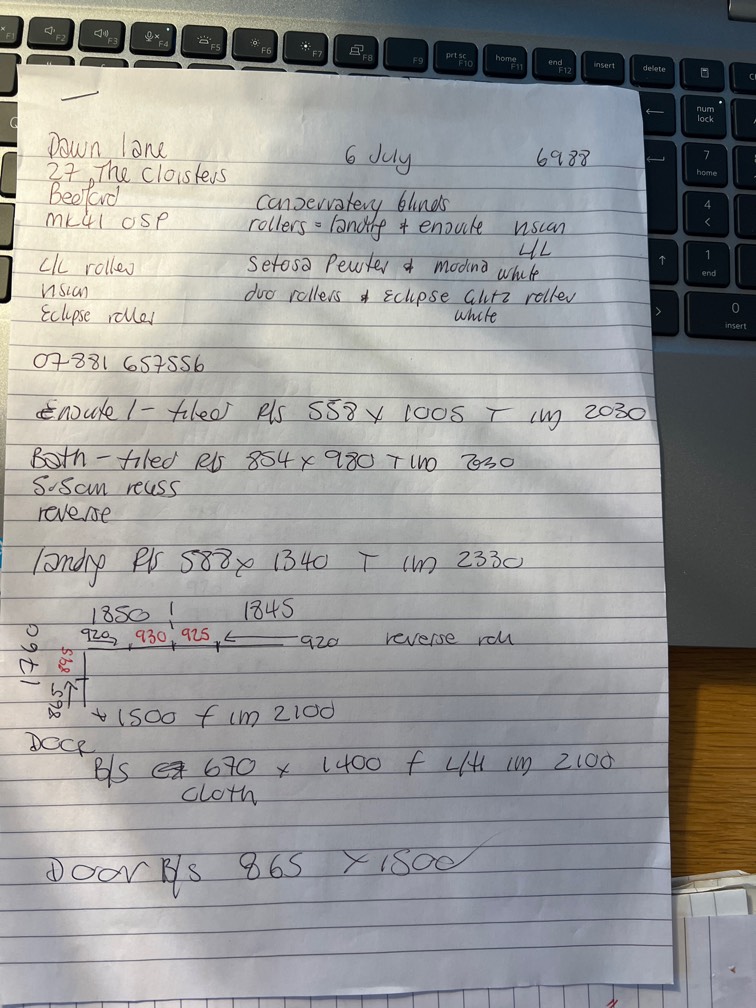 Dawn lane 6 July 6988
27, The Cloisters
Beeford Conservatery blinds
MK41 OSP rollers = landry & ensuite Nsian
L/L
L/L roller Setosa Pewter & Modina white
Nsian duo rollers & Eclipse Glitz roller
Eclipse roller white
07881 657556
Ensuite 1 - tiled R/S 558 x 1005 T im 2030
Bath - tiled R/S 854 x 980 T im 2030
reverse
landry R/S 588 x 1340 T im 2330
1850 1845
920 930 925 ← 920 reverse roll
1760
598
598
x 1500 f im 2100
Door
B/S 670 x 1400 f L/H im 2100
cloth
Door B/S 865 x 1500
prt sc
F10
home
F11
end
F12
insert
delete
num
lock
7
home
4
1
end
0
insert
F2
F3
F4
F5
F6
F7
F8
F9